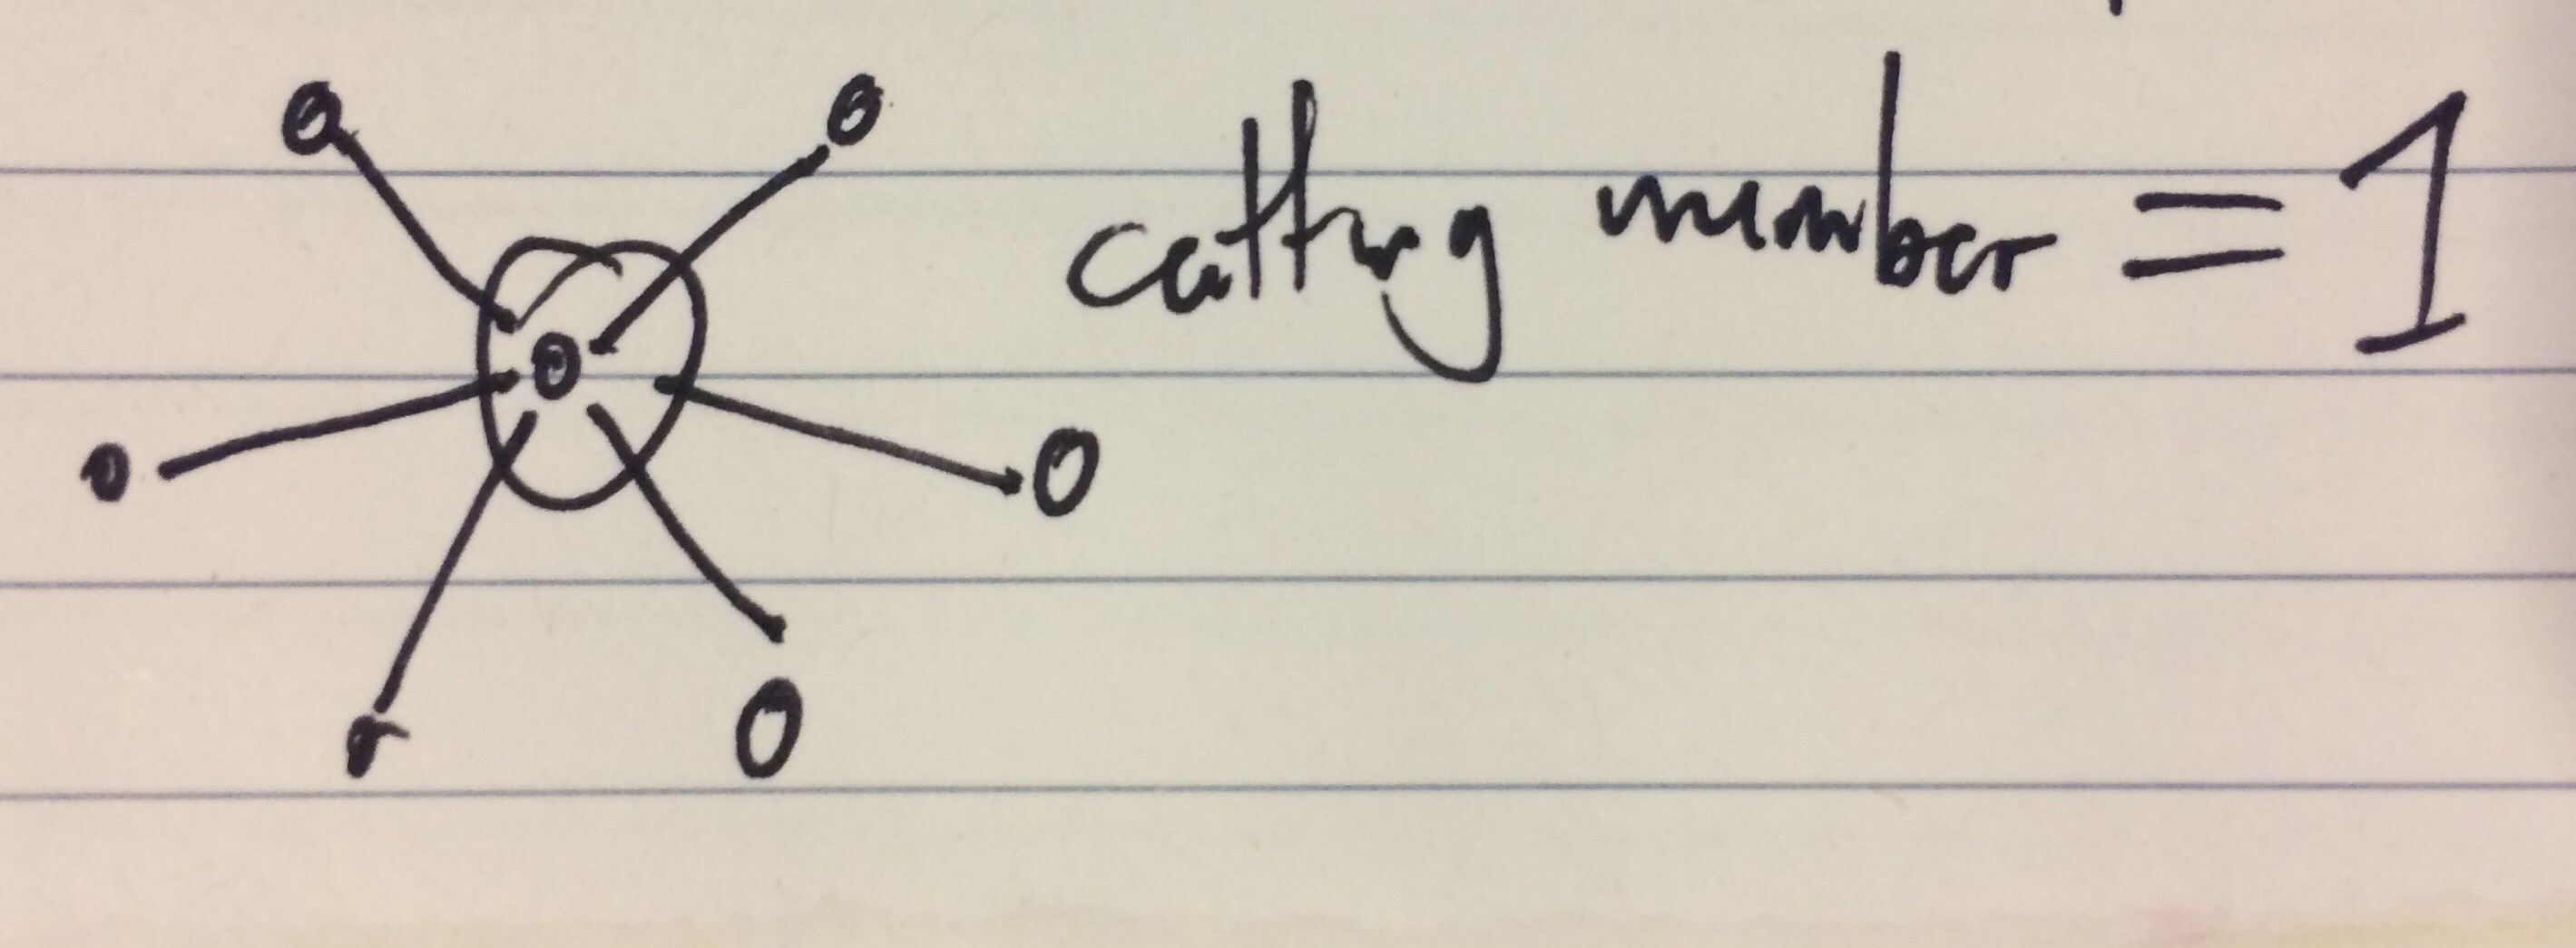 cutting number = 1